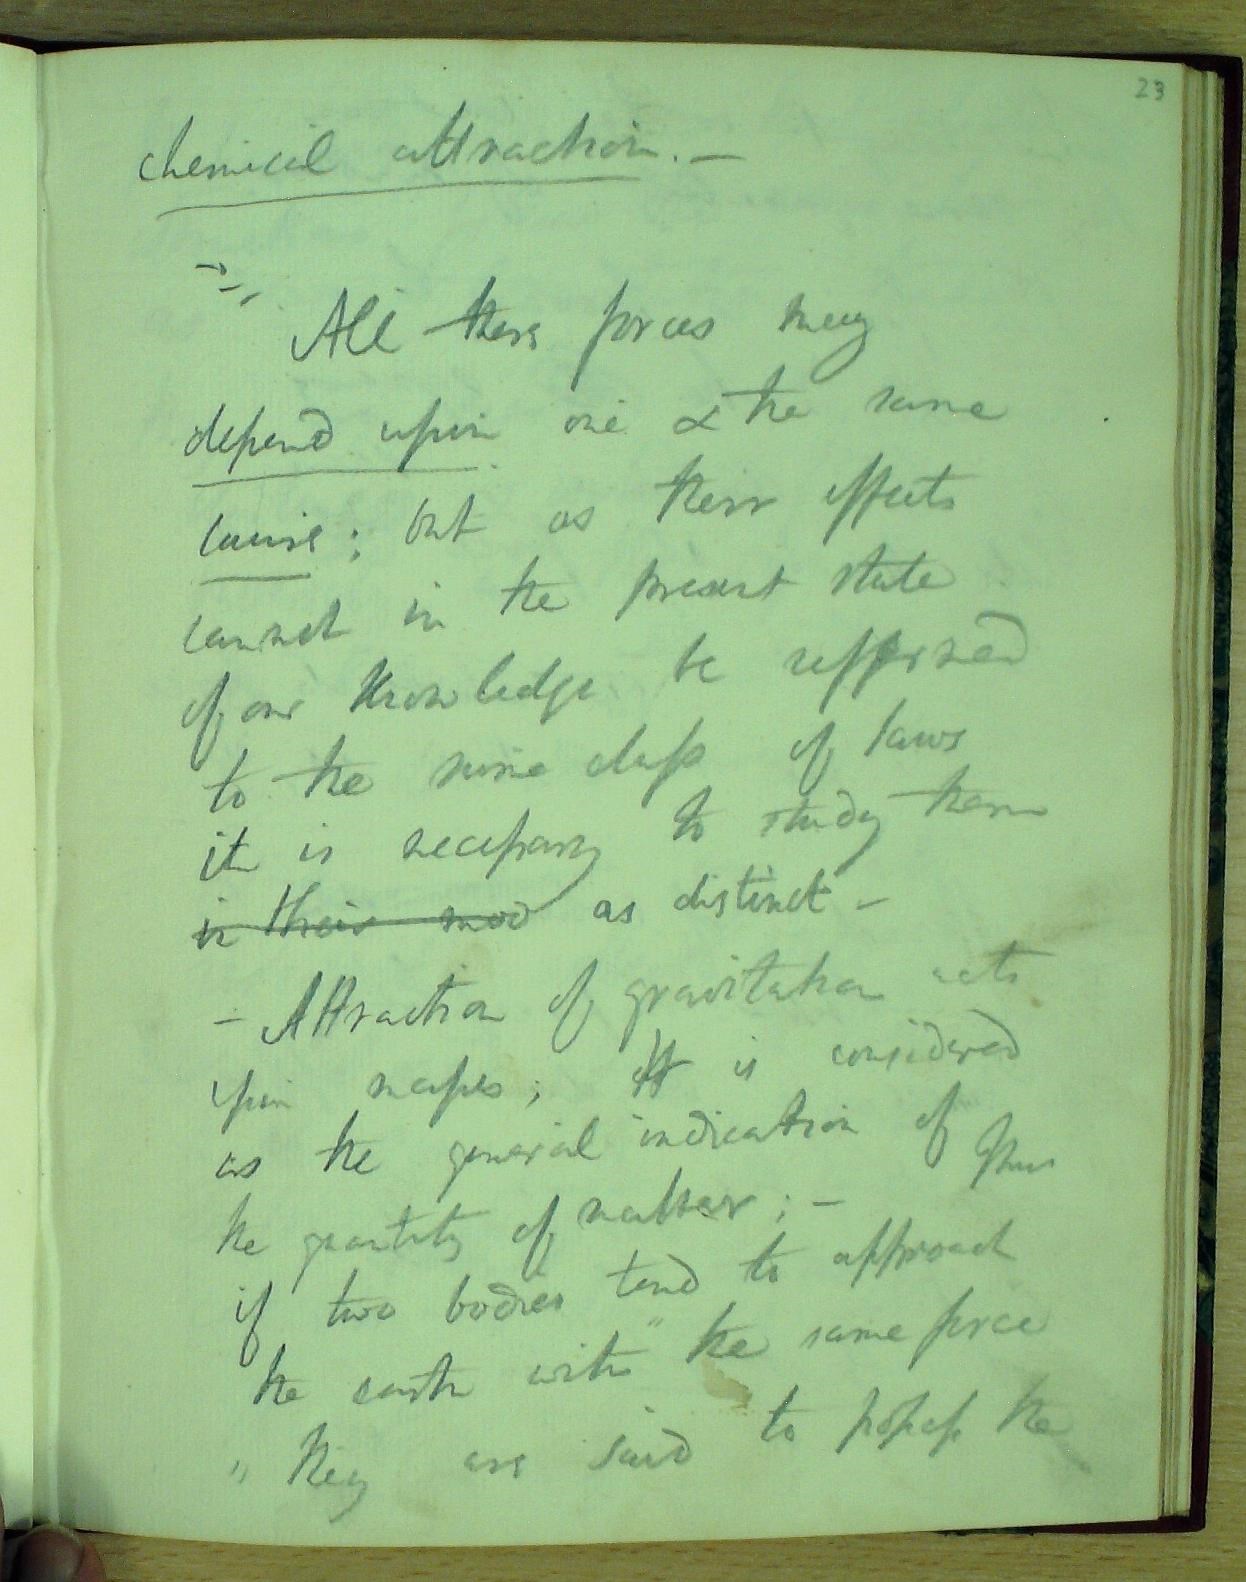 23
chemical attraction. —
All these forces may
depend upon one & the same
cause; but as their effects
cannot in the present state
of our knowledge be refferred
to the same class of laws
it is necessary to study them
in their mod as distinct –
– Attraction of gravitation acts
upon masses; It is considered
as the general indication of
the quantity of matter; – Thus
if two bodies tend to approach
the earth with " the same force
" they are said to possess the